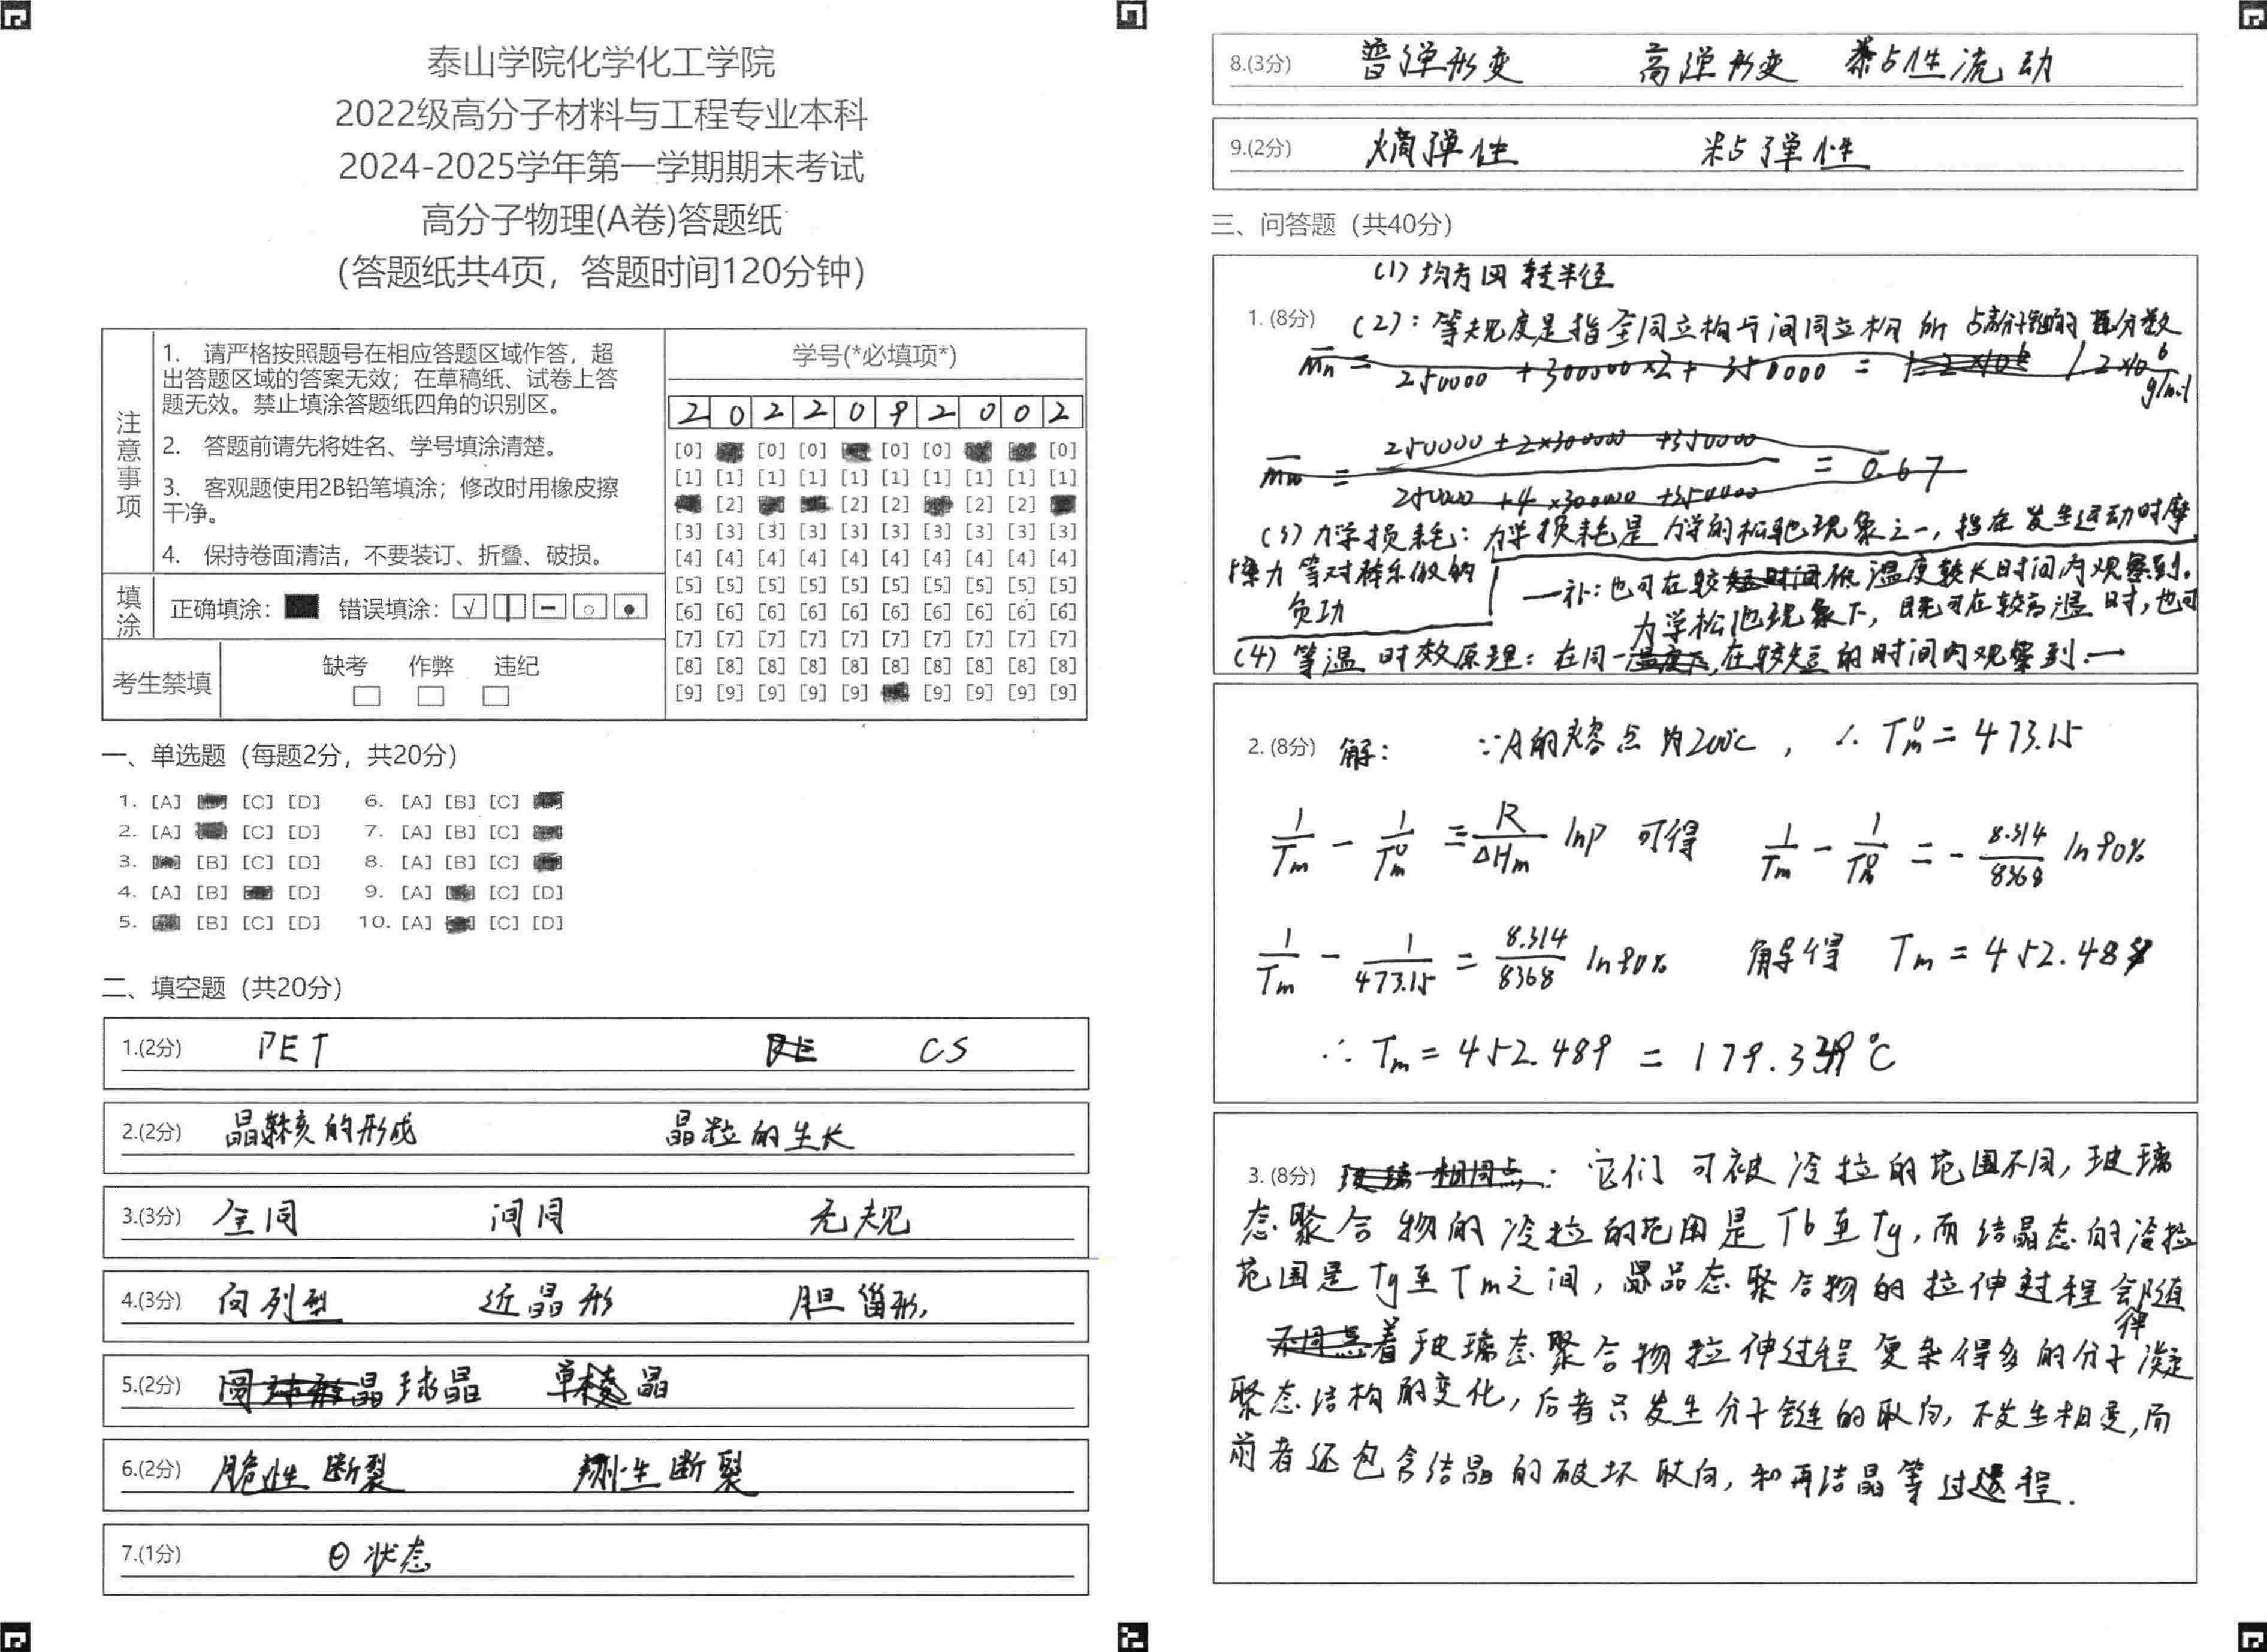 泰山学院化学化工学院
2022级高分子材料与工程专业本科
2024-2025学年第一学期期末考试
高分子物理(A卷)答题纸
(答题纸共4页，答题时间120分钟)
注意事项
1. 请严格按照题号在相应答题区域作答，超
出答题区域的答案无效；在草稿纸、试卷上答
题无效。禁止填涂答题纸四角的识别区。
2. 答题前请先将姓名、学号填涂清楚。
3. 客观题使用2B铅笔填涂；修改时用橡皮擦
干净。
4. 保持卷面清洁，不要装订、折叠、破损。
填涂 正确填涂： 错误填涂：
考生禁填 缺考 作弊 违纪
学号(*必填项*)
2 0 2 2 0 9 2 0 0 2
[0] [0] [0] [0] [0] [0]
[1] [1] [1] [1] [1] [1] [1] [1] [1] [1]
[2] [2] [2] [2] [2]
[3] [3] [3] [3] [3] [3] [3] [3] [3] [3]
[4] [4] [4] [4] [4] [4] [4] [4] [4] [4]
[5] [5] [5] [5] [5] [5] [5] [5] [5] [5]
[6] [6] [6] [6] [6] [6] [6] [6] [6] [6]
[7] [7] [7] [7] [7] [7] [7] [7] [7] [7]
[8] [8] [8] [8] [8] [8] [8] [8] [8] [8]
[9] [9] [9] [9] [9] [9] [9] [9] [9]
一、单选题（每题2分，共20分）
1. [A] [C] [D] 6. [A] [B] [C]
2. [A] [C] [D] 7. [A] [B] [C]
3. [B] [C] [D] 8. [A] [B] [C]
4. [A] [B] [D] 9. [A] [C] [D]
5. [B] [C] [D] 10. [A] [C] [D]
二、填空题（共20分）
1.(2分) PET CS
2.(2分) 晶核的形成 晶粒的生长
3.(3分) 全同 间同 无规
4.(3分) 向列型 近晶形 胆甾形
5.(2分) 球晶 单晶
6.(2分) 脆性断裂 断裂
7.(1分) Θ状态
8.(3分) 普弹形变 高弹形变 黏性流动
9.(2分) 熵弹性 粘弹性
三、问答题（共40分）
(1) 均方回转半径
1. (8分) (2)：等规度是指全同立构与间同立构所占高分子的百分数
Mn = 250000 + 300000×2 + 350000 = 1.2×10⁶ g/mol
Mw = (250000 + 2×300000 + 350000) / (250000 + 4×300000 + 350000) = 0.67
(3) 力学损耗：力学损耗是力学的松弛现象之一，指在发生运动时摩
擦力等对体系做的
负功
一补：也可在较低温度较长时间内观察到。
力学松弛现象下，既可在较高温时，也可
(4) 等温时效原理：在同一 在较短的时间内观察到.
2. (8分) 解： ∵A的熔点为200℃， ∴ Tm⁰ = 473.15
1/Tm − 1/Tm⁰ = R/ΔHm lnP 可得 1/Tm − 1/Tm⁰ = − 8.314/8368 ln90%
1/Tm − 1/473.15 = 8.314/8368 ln90% 解得 Tm = 452.489
∴ Tm = 452.489 = 179.339℃
3. (8分) 相同点：它们可被冷拉的范围不同，玻璃
态聚合物的冷拉的范围是Tb至Tg，而结晶态的冷拉
范围是Tg至Tm之间，晶态聚合物的拉伸过程伴随
不同点着玻璃态聚合物拉伸过程复杂得多的分子凝
聚态结构的变化，后者只发生分子链的取向，不发生相变，而
前者还包含结晶的破坏取向，和再结晶等过程.